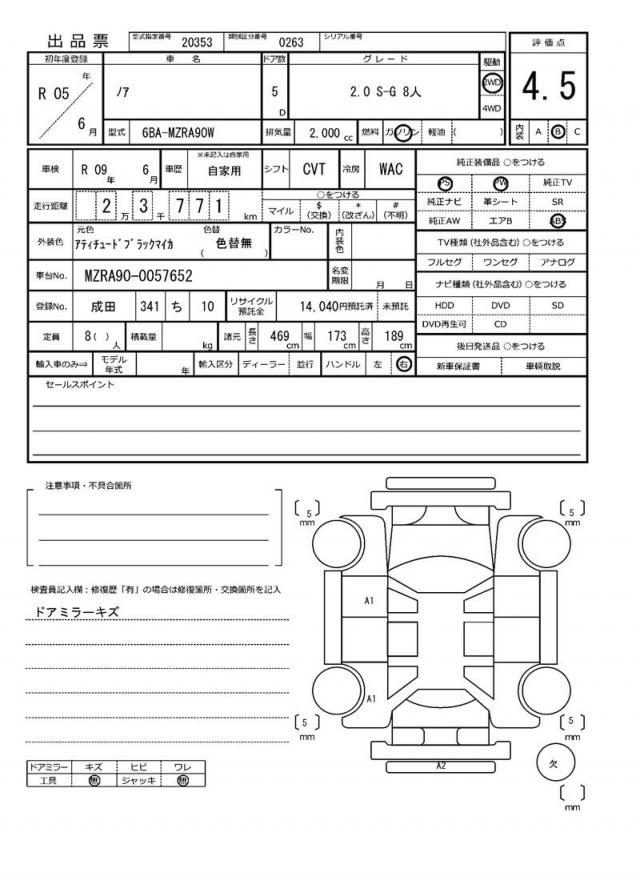 出品票 型式指定番号 20353 類別区分番号 0263 シリアル番号
初年度登録 車名 ドア数 グレード 駆動 評価点
R 05 年 6 月 ノア 5 D 2.0 S-G 8人 2WD 4WD 4.5
型式 6BA-MZRA90W 排気量 2,000 cc 燃料 ガソリン 軽油 ( ) 内装 A B C
車検 R 09 年 6 月 車歴 ※未記入は自家用 自家用 シフト CVT 冷房 WAC
走行距離 2 万 3 千 7 7 1 km ○をつける マイル $ (交換) * (改ざん) # (不明)
外装色 元色 アティチュードブラックマイカ 色替 ( 色替無 ) カラーNo. 内装色
車台No. MZRA90-0057652 名変期限 月 日
登録No. 成田 341 ち 10 リサイクル預託金 14,040円預託済 未預託
定員 8 ( ) 人 積載量 kg 諸元 長さ 469 cm 幅 173 cm 高さ 189 cm
輸入車のみ⇒ モデル年式 年 輸入区分 ディーラー 並行 ハンドル 左 右
純正装備品 ○をつける
PS PW 純正TV
純正ナビ 革シート SR
純正AW エアB ABS
TV種類(社外品含む) ○をつける
フルセグ ワンセグ アナログ
ナビ種類(社外品含む) ○をつける
HDD DVD SD
DVD再生可 CD
後日発送品 ○をつける
新車保証書 車輌取説
セールスポイント
注意事項・不具合箇所
検査員記入欄:修復歴「有」の場合は修復箇所・交換箇所を記入
ドアミラーキズ
ドアミラー キズ ヒビ ワレ
工具 無 ジャッキ 無
5 mm
5 mm
A1
A1
5 mm
5 mm
A2
欠
mm